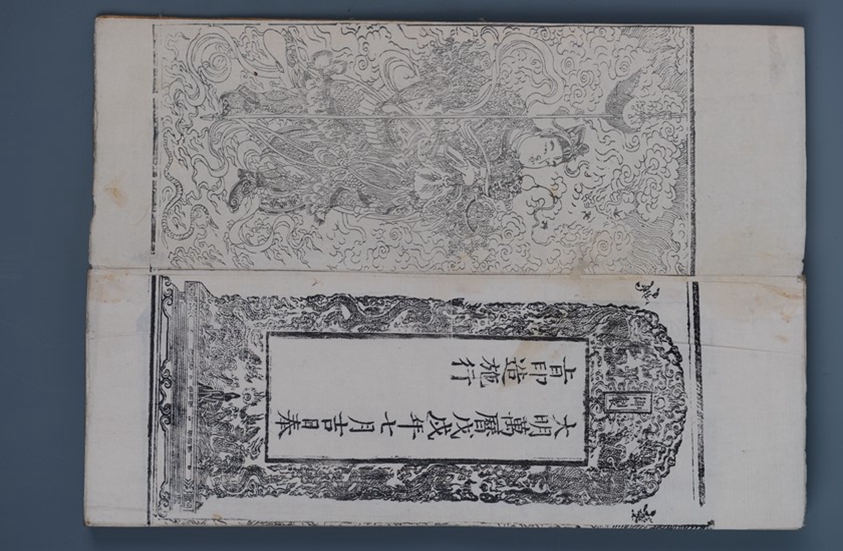 大明萬曆戊戌年七月吉日奉
旨印造施行